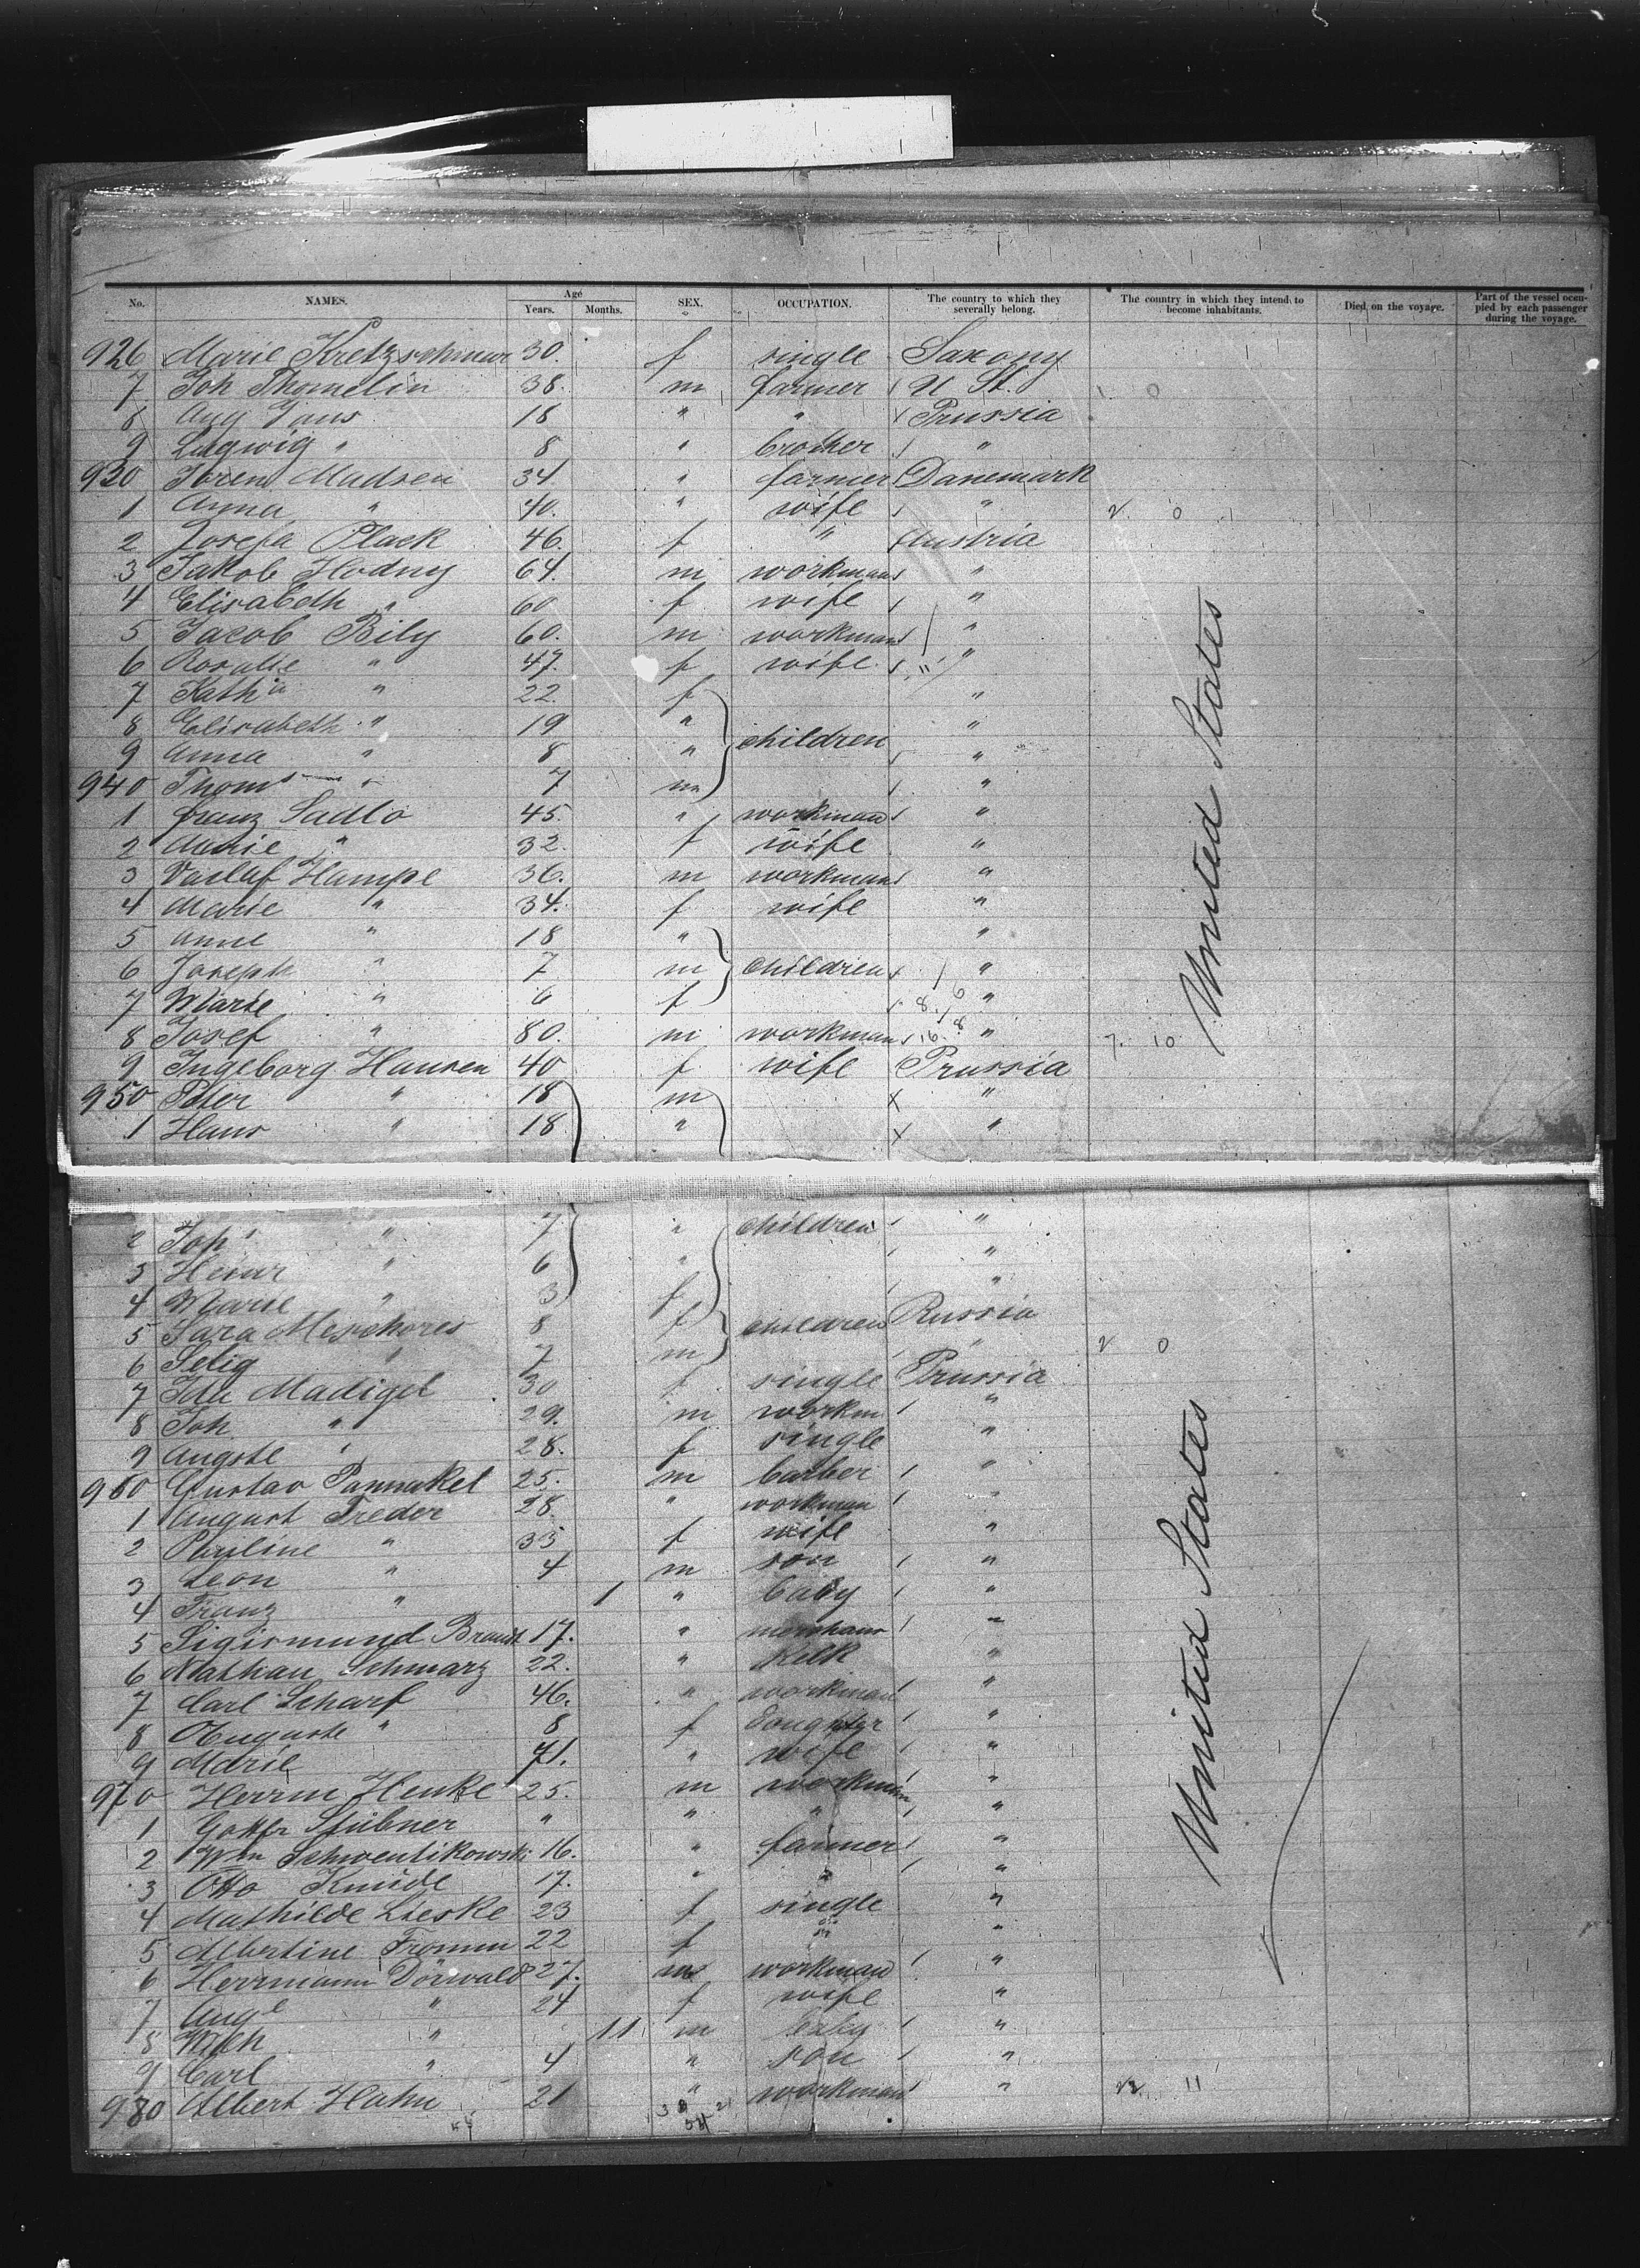 No. NAMES. Age Years. Months. SEX. OCCUPATION. The country to which they severally belong. The country in which they intend to become inhabitants. Died on the voyage. Part of the vessel occupied by each passenger during the voyage.
926 Marie Kretzschmar 30. f single Saxony
7 Joh Thomelin 38. m farmer U St. 1 0
8 Aug Jans 18 " " Prussia
9 Ludwig " 8 " brother "
930 Sören Madsen 34 " farmer Danemark
1 Anna " 40. " wife " 2 0
2 Josefa Plack 46. f " Austria
3 Jakob Hodny 64. m workman "
4 Elisabeth " 60 f wife "
5 Jacob Bily 60. m workman "
6 Rosalie " 47. f wife "
7 Kath'a " 22. f "
8 Elisabeth " 19 " children "
9 Anna " 8 " "
940 Thoms " 7 m "
1 Franz Sadlo 45. " workman "
2 Marie " 32. f wife "
3 Vaclaf Hampl 36. m workman "
4 Marie " 34. f wife "
5 Anne " 18 " "
6 Joseph " 7 m children "
7 Marie " 6 f "
8 Josef " 80. m workman 16. 8 " 7. 10
9 Ingeborg Hansen 40 f wife Prussia
950 Peter " 18 m x "
1 Hans " 18 " x "
United States
2 Joh " 7 " children "
3 Heinr " 6 " "
4 Marie " 3 f "
5 Sara Meschores 8 f children Russia
6 Selig " 7 m " 2 0
7 Ida Madigel 30 f single Prussia
8 Joh " 29. m workm "
9 Auguste " 28. f single "
960 Gustav Pannakel 25. m barber "
1 August Freder 28. " workman "
2 Pauline " 35 f wife "
3 Leon " 4 m son "
4 Franz " 1 " baby "
5 Sigismund Brandt 17. " merchant "
6 Nathan Schwarz 22. " "
7 Carl Scharf 46. " workman "
8 Auguste " 8 f Doughter "
9 Marie 71. " wife "
970 Herrm Henke 25. m workman "
1 Stübner " " " "
2 Wm Schwentikowski 16. " farmer "
3 Otto 17. " " "
4 Mathilde Lieske 23 f single "
5 Albertine Fromm 22 f " "
6 Herrmann Dörwald 27. m workman "
7 Auge " 24 f wife "
8 Wilh " 11 m baby "
9 Carl " 4 " son "
980 Albert Hahn 21 " workman " 11
United States